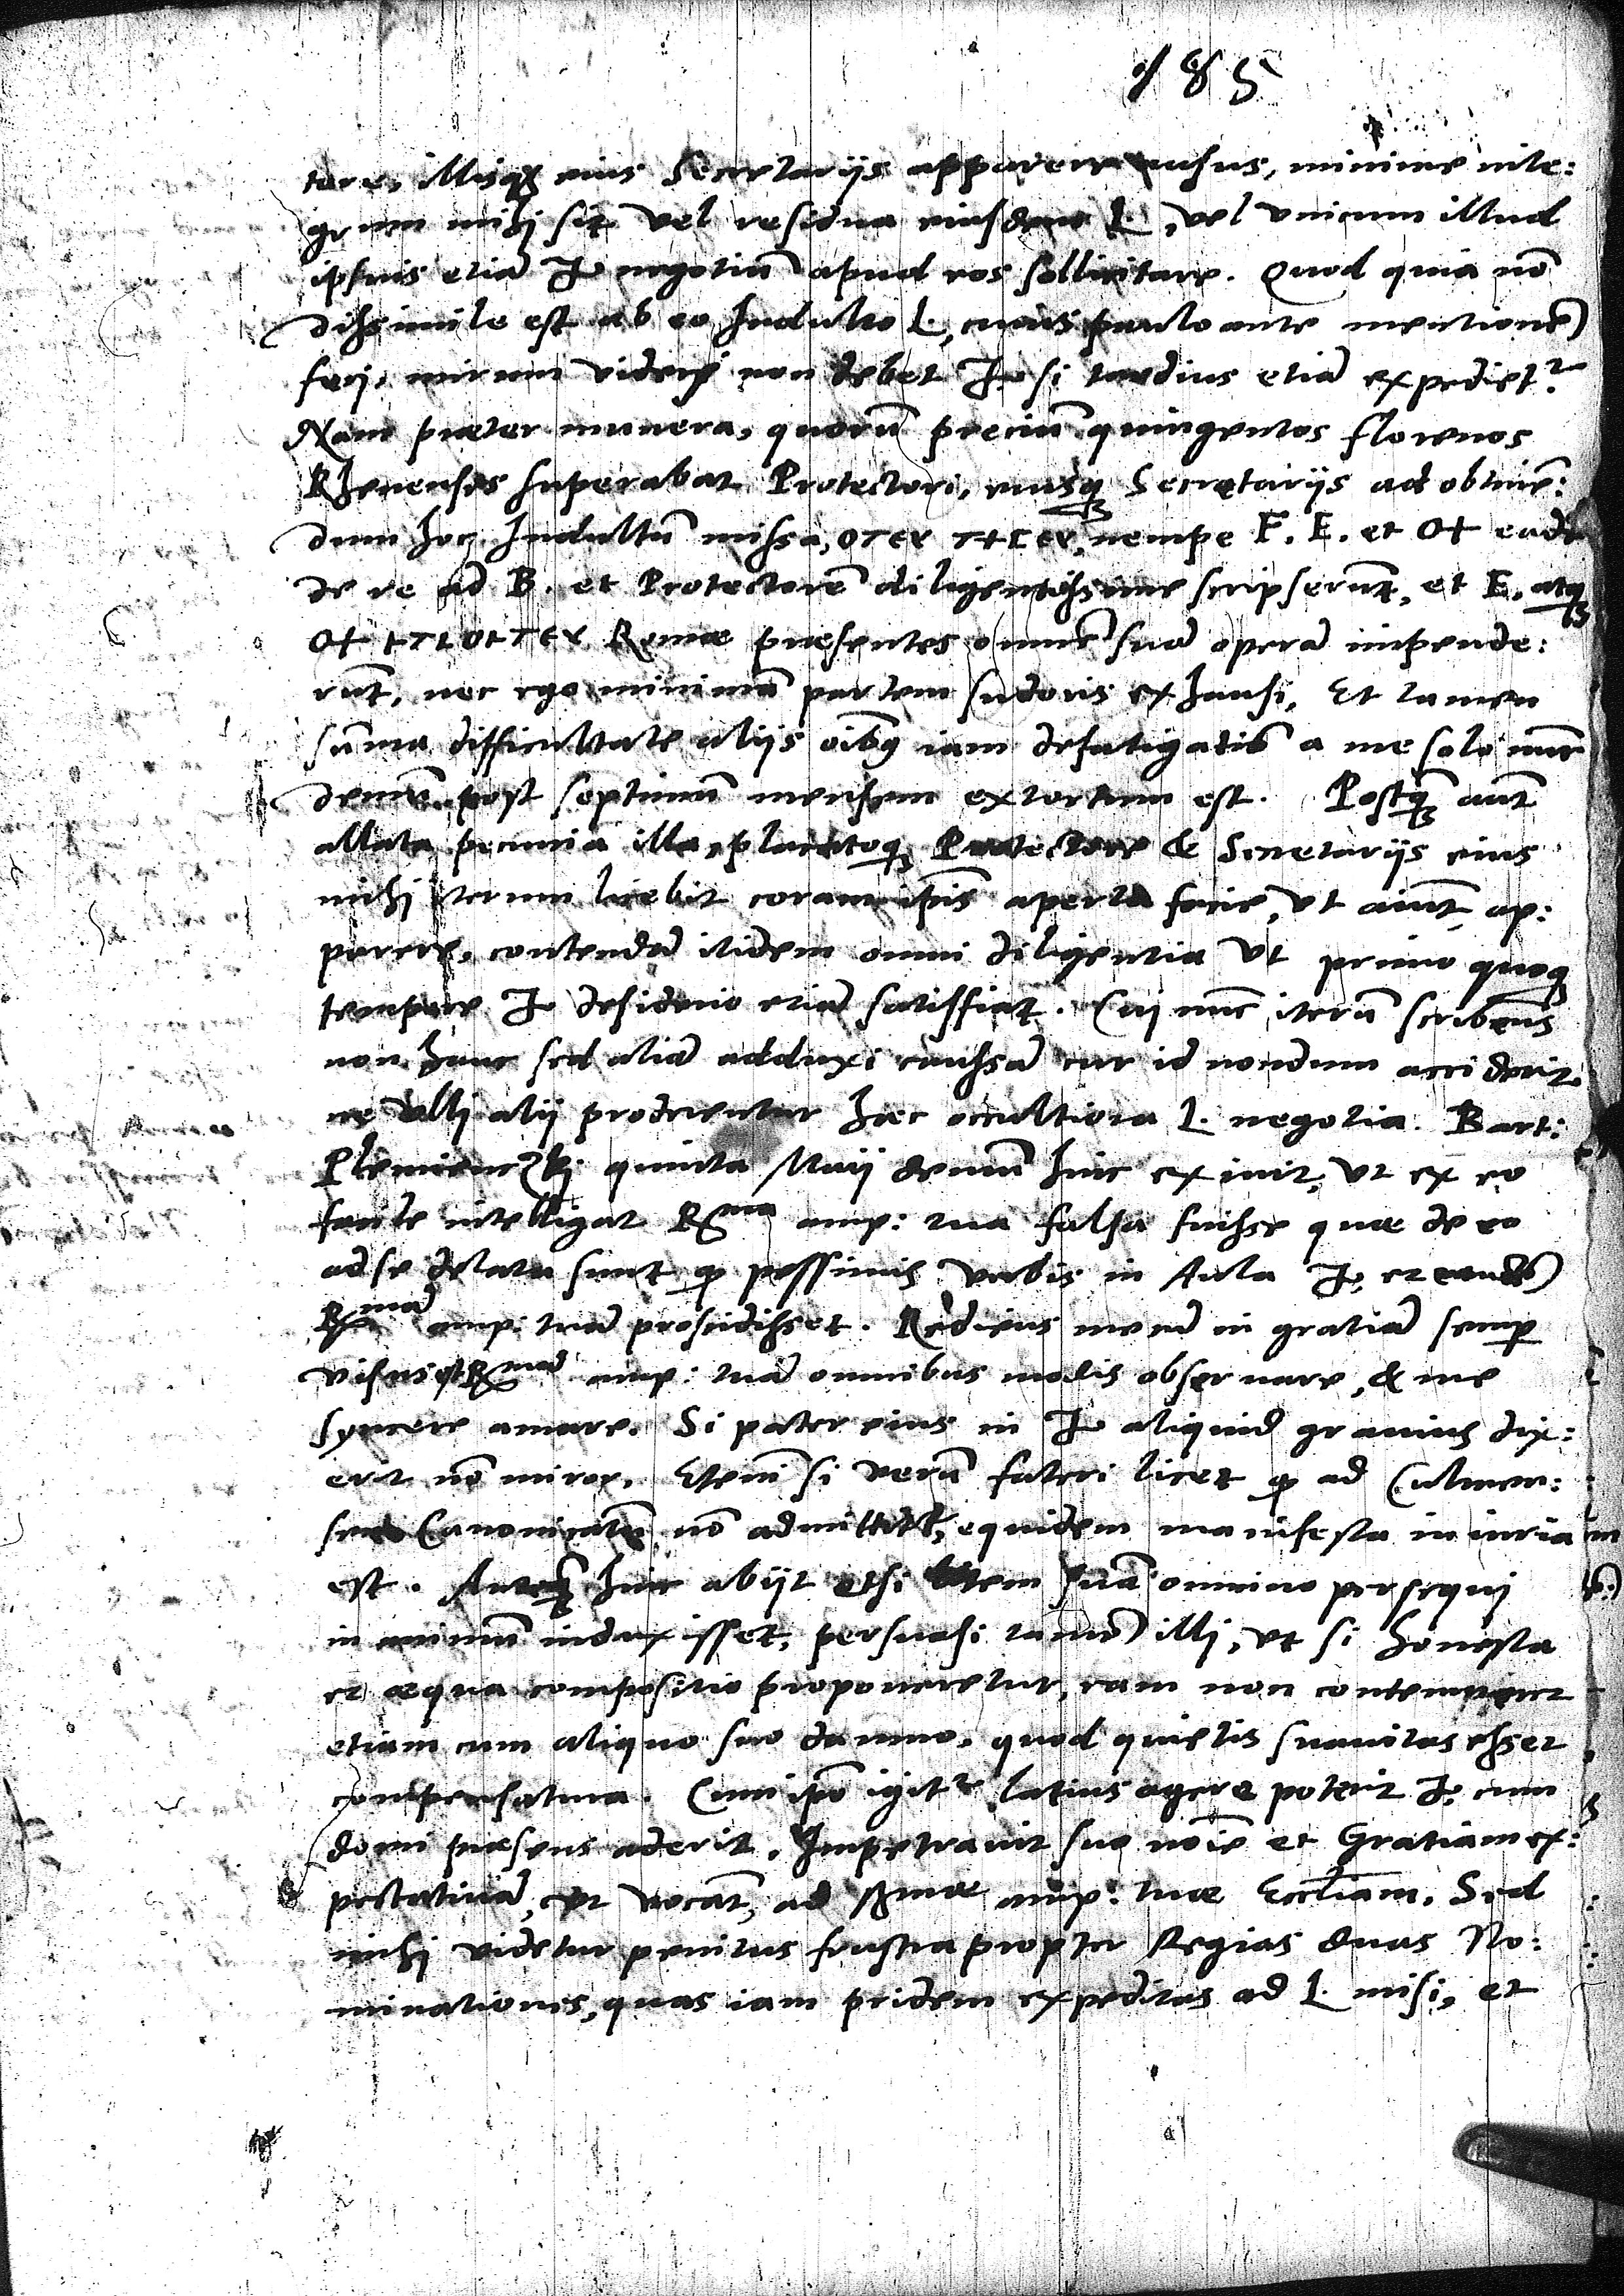 185
tare, illisq₃ eius Secretarijs apparere ausus, minime inte:
grum mihj sit vel residua eiusdem L. vel vnicum illud
ipsius etiā negotiū apud eos sollicitare. Quod quia nō
dissimile est ab eo Indulto L. cuius paulo ante mentionē
fecj, mirum viderj non debet si tardius etiā expediet?
Nam præter munera, quorū preciū quingentos florenos
Rhenenses superabat Protectori, eiusq₃ Secretarijs ad obtinē:
dum hoc Indultū missa, nempe F. E. et eadē
de re ad B. et Protectorē diligentissime scripserūt, et E. atq₃
Romæ præsentes omnē suā operā impende:
rūt, nec ego minimā partem sudoris exhausi, Et tamen
sūma difficultate alijs oībq iam defatigatis a me solo nūc
demū post septimū mensem extortum est. Postq̄₃ aūt
allata pecunia illa, placatoq₃ Protectore & Secretarijs eius
mihj iterum licebit coram ip̄is aperta facie, vt aiūt, ap:
parere, contendā itidem omni diligentia vt primo quoq₃
tempore desiderio etiā satisfiat. Cuj nūc iterū scribens
non hanc sed aliā adduxi caussā cur id nondum acciderit
ne vllj alij proderentur hæc occultiora L. negotia. Bart:
Plemienczkj quinta Maij demū hinc exiuit, vt ex eo
facile intelligat R^ma amp: tua falsa fuisse quæ de eo
ad se delata sunt q̃ pessimis verbis in Aula et eandē
R^mā amp: tuā proscidisset. Rediens meā in gratiā semp
visus est R^mā amp: tuā omnibus modis obseruare, & me
syncere amare. Si pater eius in aliquid grauius dix:
erit nō miror. Etenī si verū fateri licet q̃ ad Culmen:
sem Canonicatū nō admittitr, equidem manifesta iniuria
est. Anteq̄₃ hinc abijt etsi litem suā omnino persequj
in animū induxisset, persuasi tamē illj, vt si honesta
et æqua compositio proponeretur, eam non contemneret
etiam cum aliquo suo damno, quod quietis suauitas esset
compensatura. Cum ip̄o igitr latius agere poterit cum
domi præsens aderit. Impetrauit suo noīe et Gratiam ex:
pectatiuā, vt vocāt, ad R^mæ amp: tuæ Eccl̄iam. Sed
mihj videtur penitus frustra propter Regias duas No:
minationes, quas iam pridem expeditas ad L. misi, et